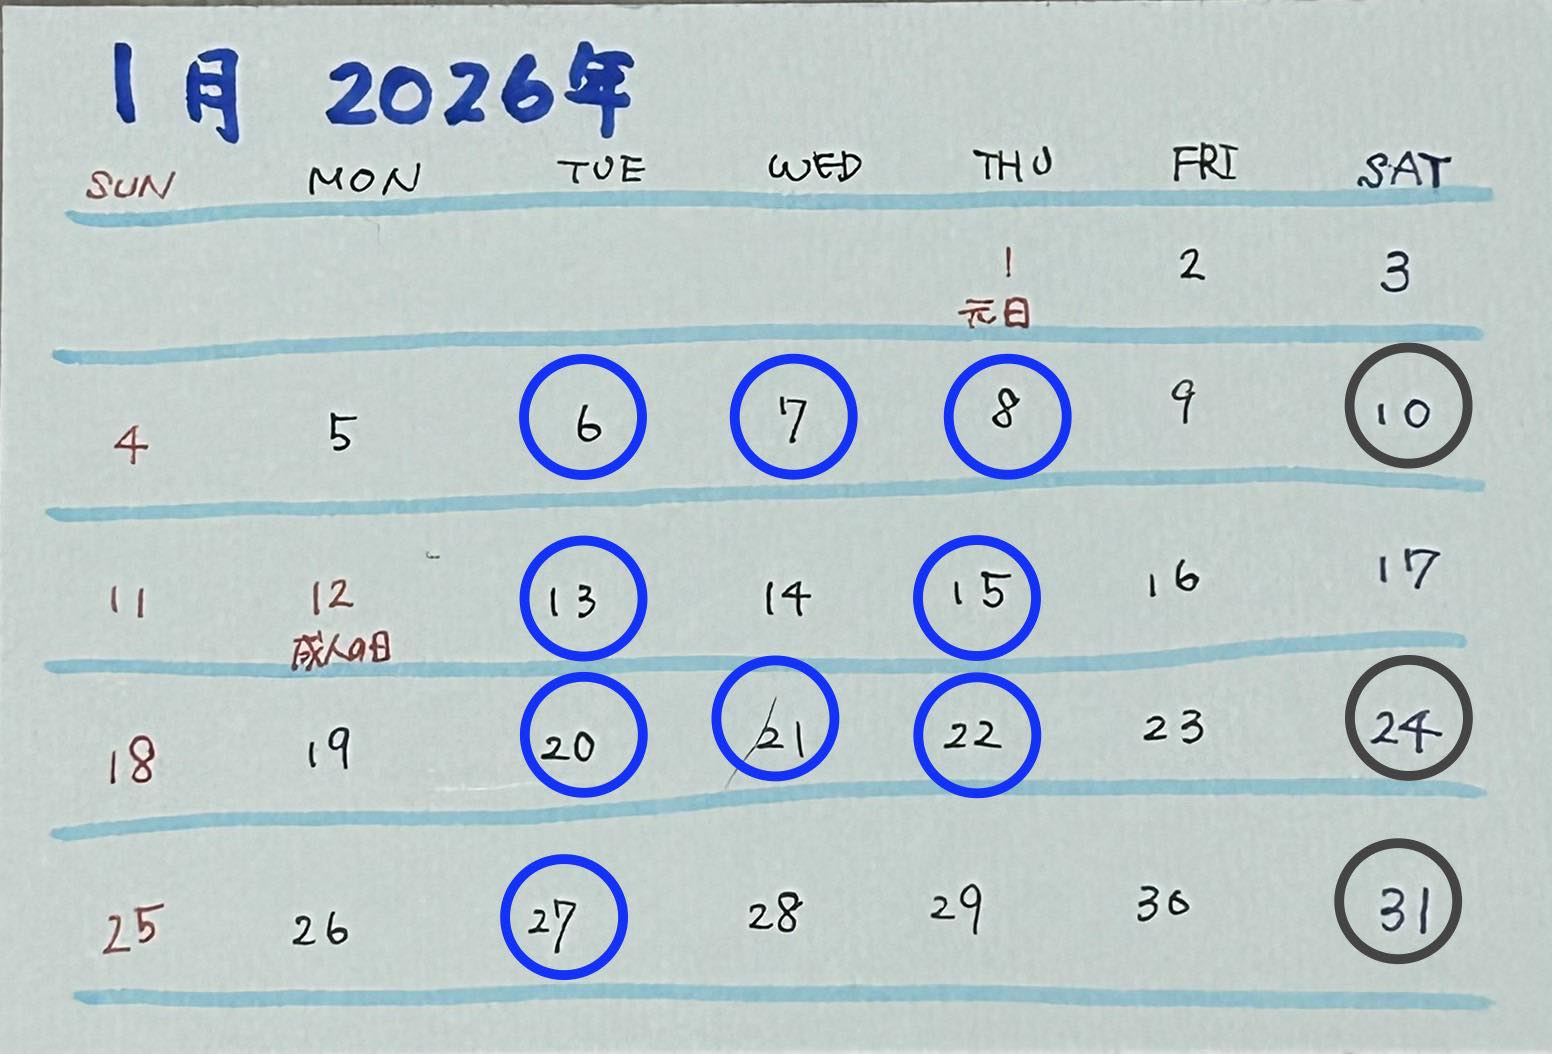 1月 2026年
SUN MON TUE WED THU FRI SAT
1 2 3
元日
4 5 6 7 8 9 10
11 12 13 14 15 16 17
成人の日
18 19 20 21 22 23 24
25 26 27 28 29 30 31